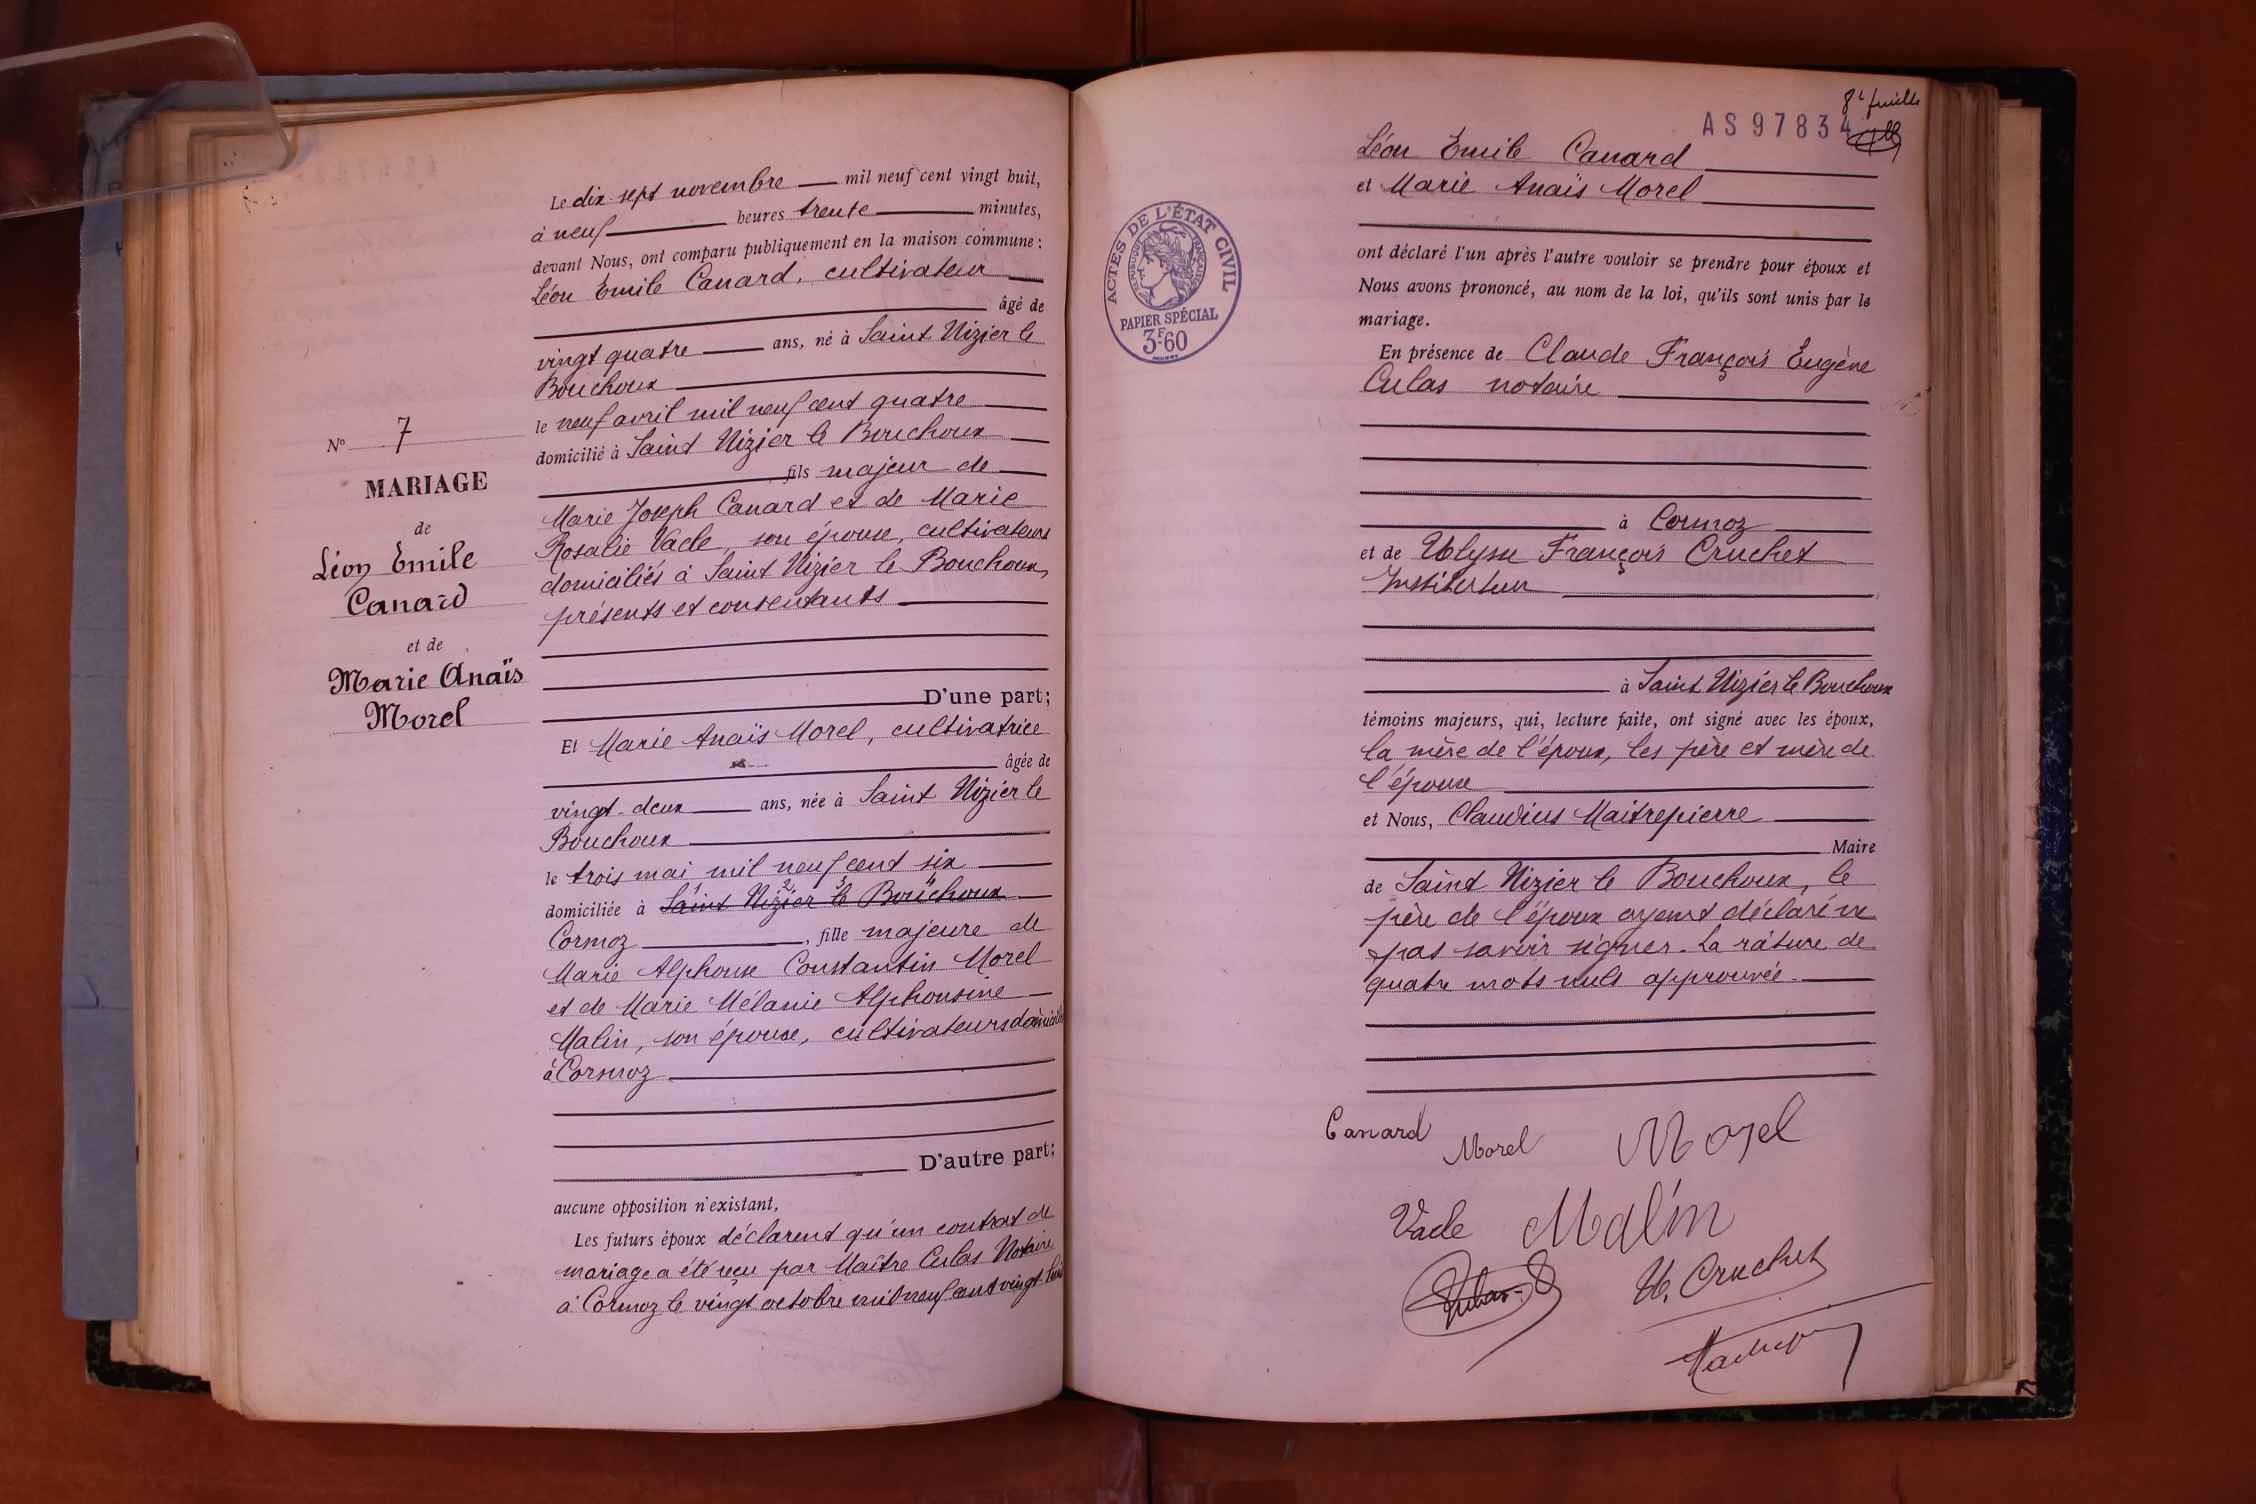 N° 7
MARIAGE
de
Léon Emile
Canard
et de
Marie Anaïs
Morel
Le dix-sept novembre mil neuf cent vingt huit,
à neuf heures trente minutes,
devant Nous, ont comparu publiquement en la maison commune :
Léon Emile Canard, cultivateur
âgé de
vingt quatre ans, né à Saint Nizier le
Bouchoux
le neuf avril mil neuf cent quatre
domicilié à Saint Nizier le Bouchoux
fils majeur de
Marie Joseph Canard et de Marie
Rosalie Vacle, son épouse, cultivateurs
domiciliés à Saint Nizier le Bouchoux,
présents et consentants
D'une part;
Et Marie Anaïs Morel, cultivatrice
âgée de
vingt-deux ans, née à Saint Nizier le
Bouchoux
le trois mai mil neuf cent six
1 2 3 4
domiciliée à Saint Nizier le Bouchoux
Cormoz, fille majeure de
Marie Alphonse Constantin Morel
et de Marie Mélanie Alphonsine
Malin, son épouse, cultivateurs domiciliés
à Cormoz
D'autre part;
aucune opposition n'existant,
Les futurs époux déclarent qu'un contrat de
mariage a été reçu par Maître Culas Notaire
à Cormoz le vingt octobre mil neuf cent vingt-huit
8e feuille
AS 97834
ACTES DE L'ÉTAT CIVIL
RÉPUBLIQUE FRANÇAISE
PAPIER SPÉCIAL
3F.60
Léon Emile Canard
et Marie Anaïs Morel
ont déclaré l'un après l'autre vouloir se prendre pour époux et
Nous avons prononcé, au nom de la loi, qu'ils sont unis par le
mariage.
En présence de Claude François Eugène
Culas notaire
à Cormoz
et de Ulysse François Cruchet
Instituteur
à Saint Nizier le Bouchoux
témoins majeurs, qui, lecture faite, ont signé avec les époux,
la mère de l'époux, les père et mère de
l'épouse
et Nous, Claudius Maitrepierre
Maire
de Saint Nizier le Bouchoux, le
père de l'époux ayant déclaré ne
pas savoir signer. La râture de
quatre mots nuls approuvée.
Canard Morel Morel
Vacle Malin
U. Cruchet